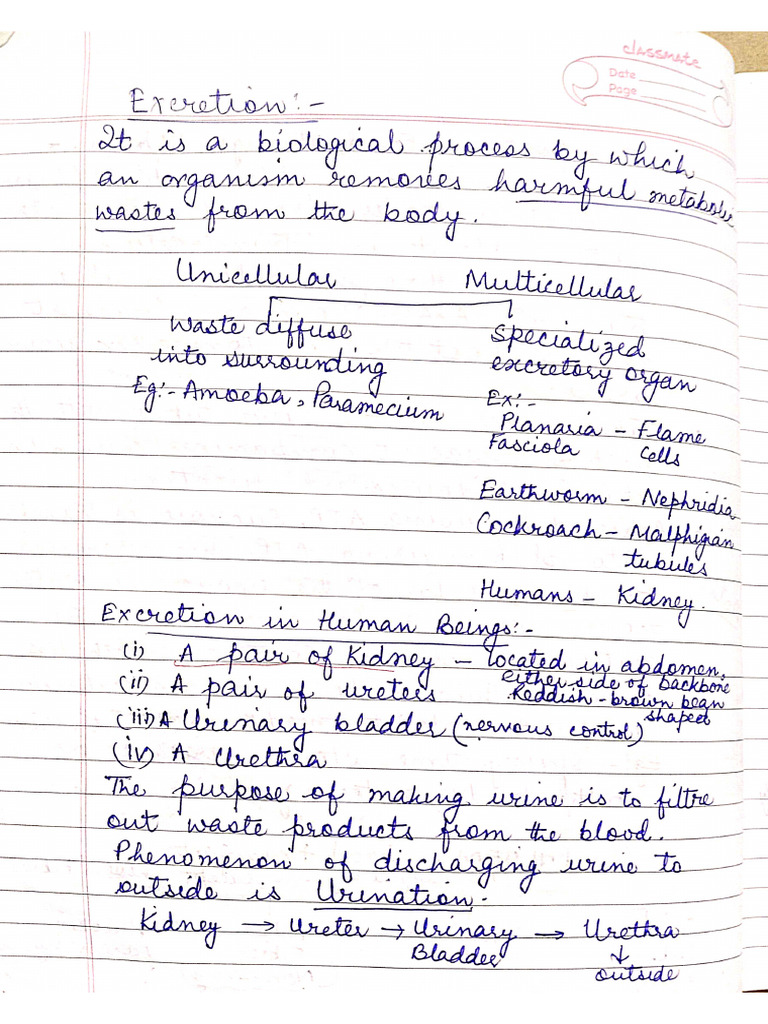 classmate
Date
Page
Excretion:-
It is a biological process by which
an organism removes harmful metabolic
wastes from the body.
Unicellular Multicellular
Waste diffuse
into surrounding
Eg:- Amoeba, Paramecium
specialized
excretory organ
Ex:-
Planaria - Flame
Fasciola cells
Earthworm - Nephridia
Cockroach - Malphigian
tubules
Humans - Kidney.
Excretion in Human Beings:-
(i) A pair of Kidney - located in abdomen.
either side of backbone
(ii) A pair of ureters Reddish-brown bean
shaped
(iii) A Urinary bladder (nervous control)
(iv) A Urethra
The purpose of making urine is to filtre
out waste products from the blood.
Phenomenon of discharging urine to
outside is Urination.
Kidney → Ureter → Urinary → Urethra
Bladder ↓
outside